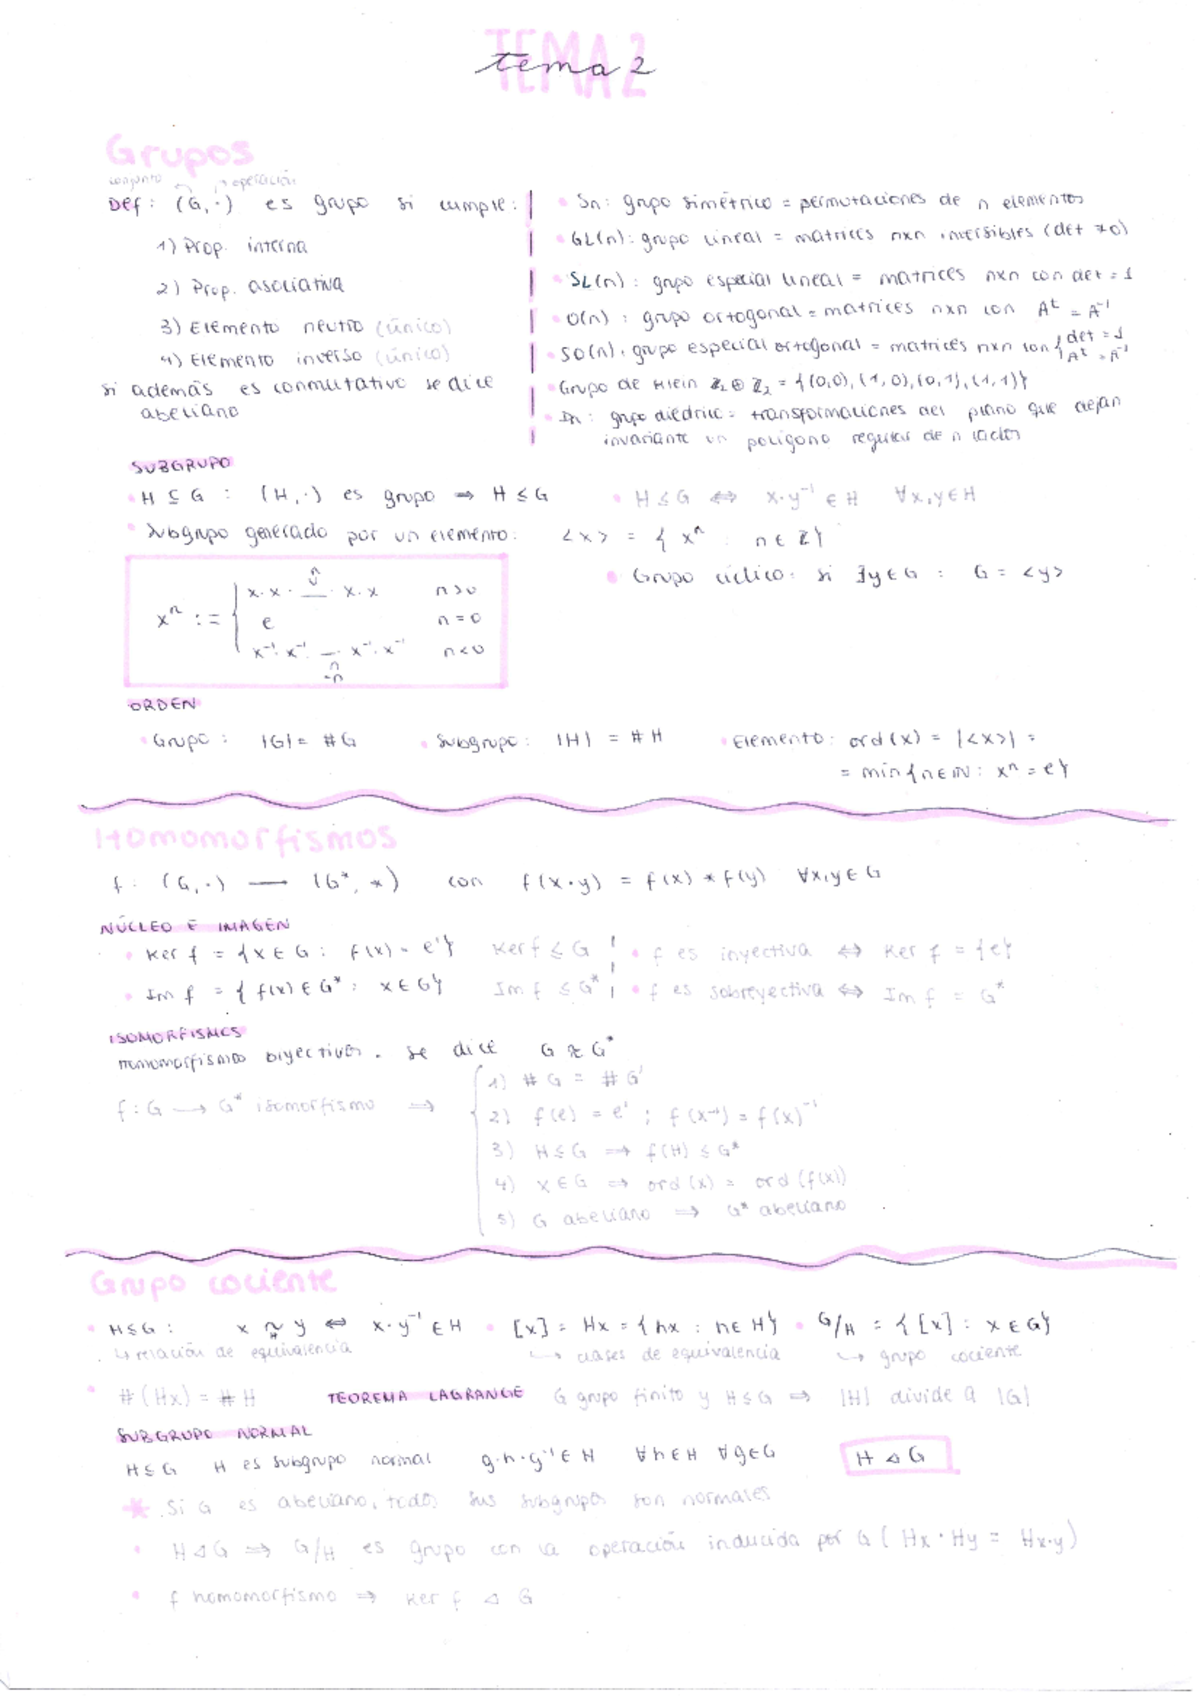 TEMA 2
tema 2
Grupos
conjunto operación
Def: (G, ·) es grupo si cumple:
1) Prop. interna
2) Prop. asociativa
3) Elemento neutro (único)
4) Elemento inverso (único)
Si además es conmutativo se dice
abeliano
• Sn: grupo simétrico = permutaciones de n elementos
• GL(n): grupo lineal = matrices nxn inversibles (det ≠ 0)
• SL(n): grupo especial lineal = matrices nxn con det = 1
• O(n): grupo ortogonal = matrices nxn con Aᵗ = A⁻¹
• SO(n): grupo especial ortogonal = matrices nxn con { det = 1
Aᵗ = A⁻¹
• Grupo de Klein ℤ₂ ⊕ ℤ₂ = {(0,0), (1,0), (0,1), (1,1)}
• Dn: grupo diédrico = transformaciones del plano que dejan
invariante un polígono regular de n lados
SUBGRUPO
• H ⊆ G : (H, ·) es grupo ⇒ H ≤ G • H ≤ G ⇔ x·y⁻¹ ∈ H ∀x,y ∈ H
• Subgrupo generado por un elemento: <x> = { xⁿ : n ∈ ℤ}
• Grupo cíclico: si ∃y ∈ G : G = <y>
xⁿ := { x·x· n… x·x n>0
e n=0
x⁻¹·x⁻¹ … x⁻¹·x⁻¹ n<0
-n
ORDEN
• Grupo: |G| = #G • Subgrupo: |H| = #H • Elemento: ord(x) = |<x>| =
= min{n∈ℕ: xⁿ = e}
Homomorfismos
f: (G, ·) → (G*, *) con f(x·y) = f(x) * f(y) ∀x,y ∈ G
NÚCLEO E IMAGEN
• Ker f = {x ∈ G : f(x) = e'} Ker f ≤ G • f es inyectiva ⇔ Ker f = {e}
• Im f = { f(x) ∈ G* : x ∈ G} Im f ≤ G* • f es sobreyectiva ⇔ Im f = G*
ISOMORFISMOS
Homomorfismo biyectivos. Se dice G ≈ G*
f: G → G* isomorfismo ⇒
1) #G = #G'
2) f(e) = e' ; f(x⁻¹) = f(x)⁻¹
3) H ≤ G ⇒ f(H) ≤ G*
4) x ∈ G ⇒ ord(x) = ord(f(x))
5) G abeliano ⇒ G* abeliano
Grupo cociente
• H ≤ G : x ~H y ⇔ x·y⁻¹ ∈ H • [x] = Hx = {hx : h ∈ H} • G/H = {[x] : x ∈ G}
↳ relación de equivalencia ↳ clases de equivalencia ↳ grupo cociente
• #(Hx) = #H TEOREMA LAGRANGE G grupo finito y H ≤ G ⇒ |H| divide a |G|
SUBGRUPO NORMAL
H ≤ G H es subgrupo normal g·h·g⁻¹ ∈ H ∀h∈H ∀g∈G H ⊲ G
* Si G es abeliano, todos sus subgrupos son normales
• H ⊲ G ⇒ G/H es grupo con la operación inducida por G (Hx · Hy = Hx·y)
• f homomorfismo ⇒ Ker f ⊲ G